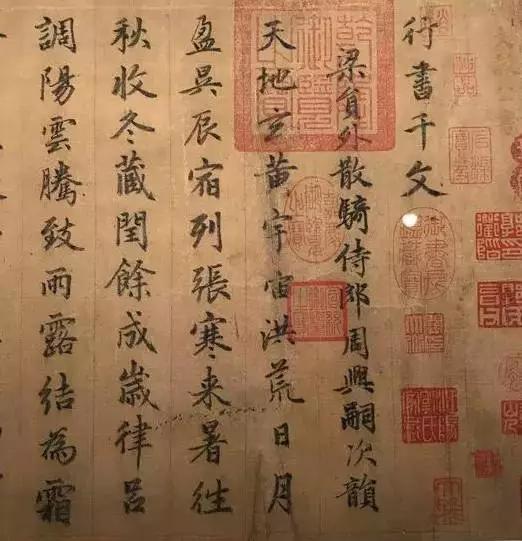 行書千文
梁貟外散騎侍郎周興嗣次韻
天地玄黃宇宙洪荒日月
盈昃辰宿列張寒来暑往
秋收冬藏閏餘成歲律呂
調陽雲騰致雨露結為霜